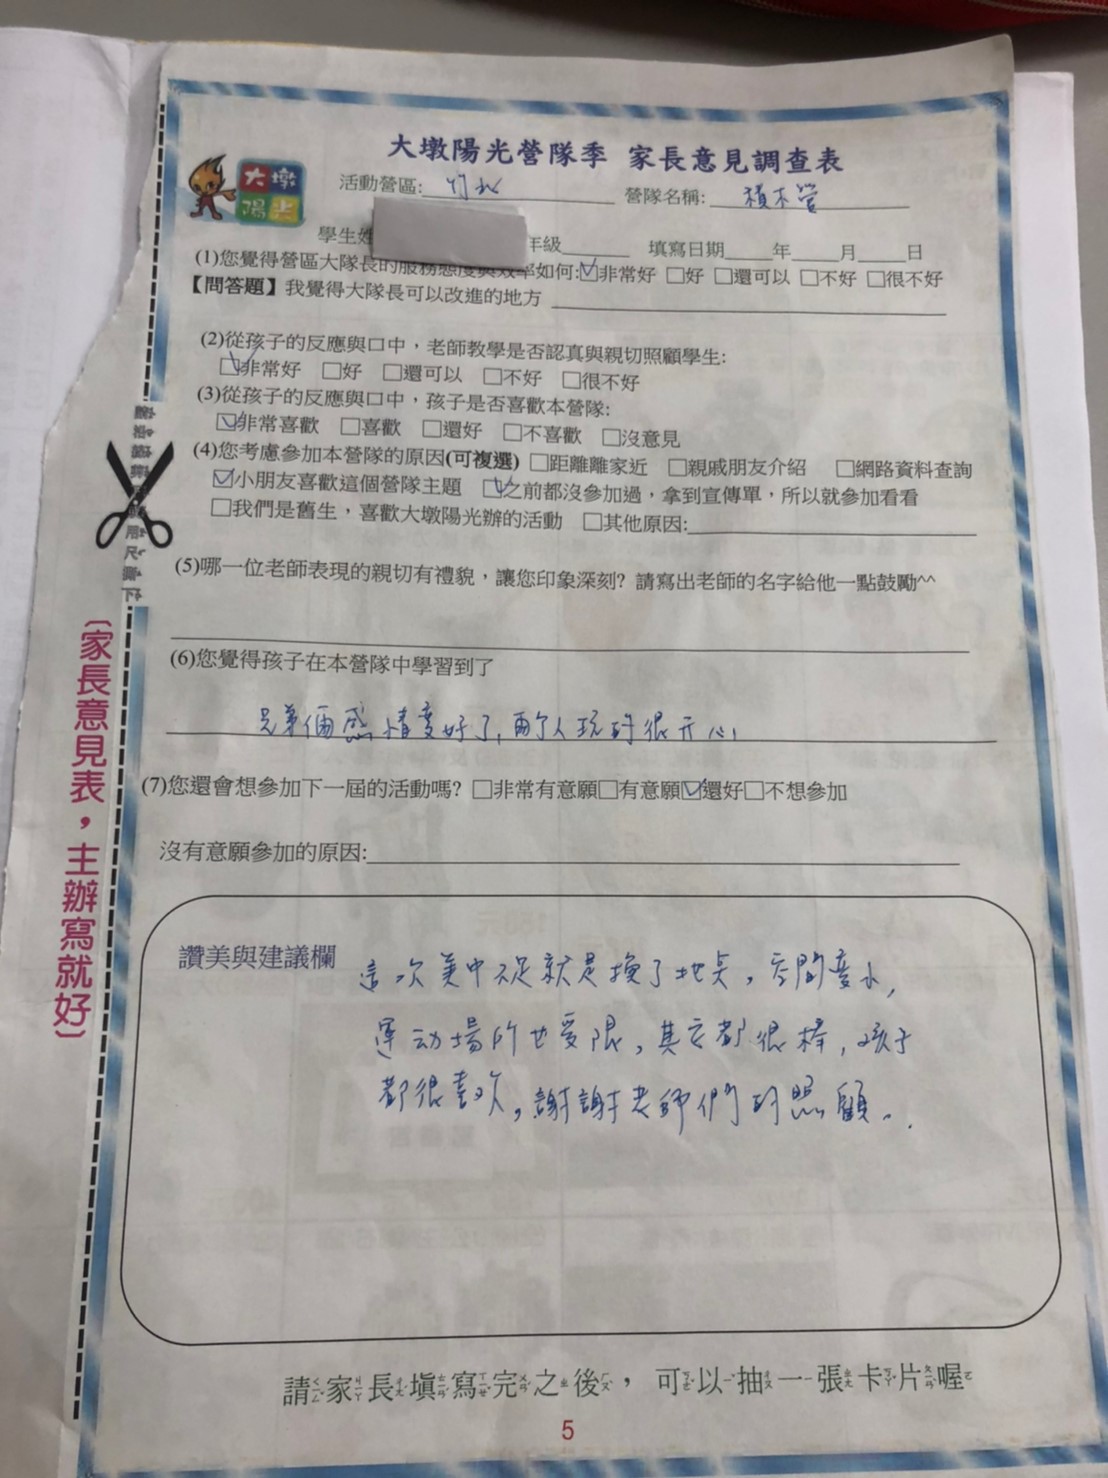 大墩陽光營隊季 家長意見調查表
大墩
陽光
活動營區: 竹北 營隊名稱: 積木營
學生姓 年級 填寫日期 年 月 日
(1)您覺得營區大隊長的服務態度與效率如何:☑非常好 □好 □還可以 □不好 □很不好
【問答題】我覺得大隊長可以改進的地方
(2)從孩子的反應與口中，老師教學是否認真與親切照顧學生:
☑非常好 □好 □還可以 □不好 □很不好
(3)從孩子的反應與口中，孩子是否喜歡本營隊:
☑非常喜歡 □喜歡 □還好 □不喜歡 □沒意見
(4)您考慮參加本營隊的原因(可複選) □距離離家近 □親戚朋友介紹 □網路資料查詢
☑小朋友喜歡這個營隊主題 ☑之前都沒參加過，拿到宣傳單，所以就參加看看
□我們是舊生，喜歡大墩陽光辦的活動 □其他原因:
(5)哪一位老師表現的親切有禮貌，讓您印象深刻? 請寫出老師的名字給他一點鼓勵^^
(6)您覺得孩子在本營隊中學習到了
兄弟倆感情變好了,兩个人玩的很开心
(7)您還會想參加下一屆的活動嗎? □非常有意願□有意願☑還好□不想參加
沒有意願參加的原因:
讚美與建議欄
這次美中不足就是換了地點，空間變小,
運动場所也受限，其它都很棒，孩子
都很喜欢，謝謝老師們的照顧。
〔家長意見表，主辦寫就好〕
請家長填寫完之後，可以抽一張卡片喔
5